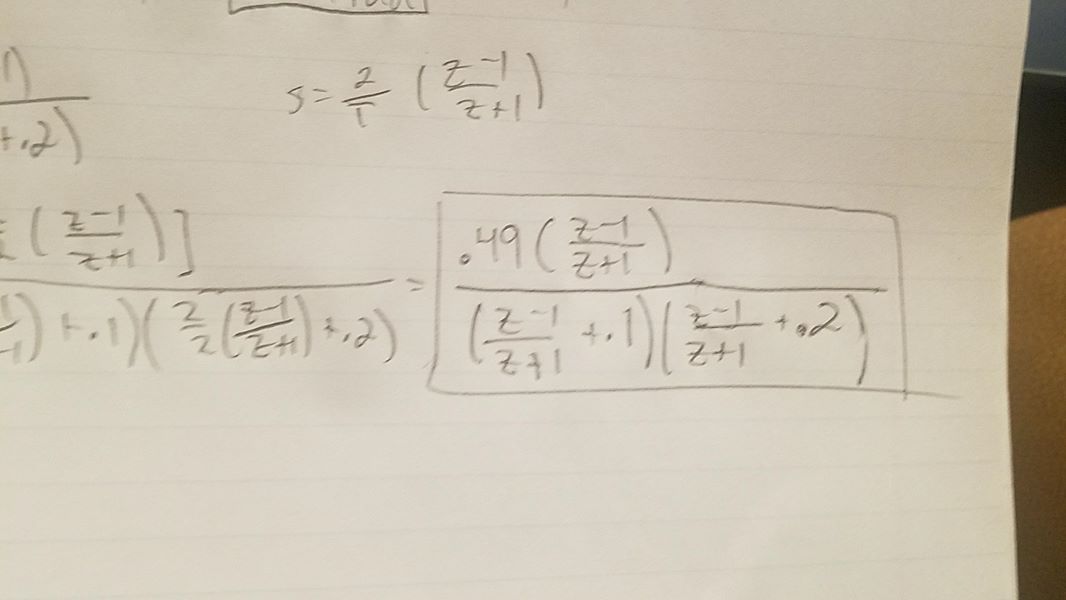 1) / +.2)
s = 2/T (z-1/z+1)
(z-1/z+1)] / ) + .1)(2/2(z-1/z+1) + .2) = .49(z-1/z+1) / (z-1/z+1 + .1)(z-1/z+1 + .2)